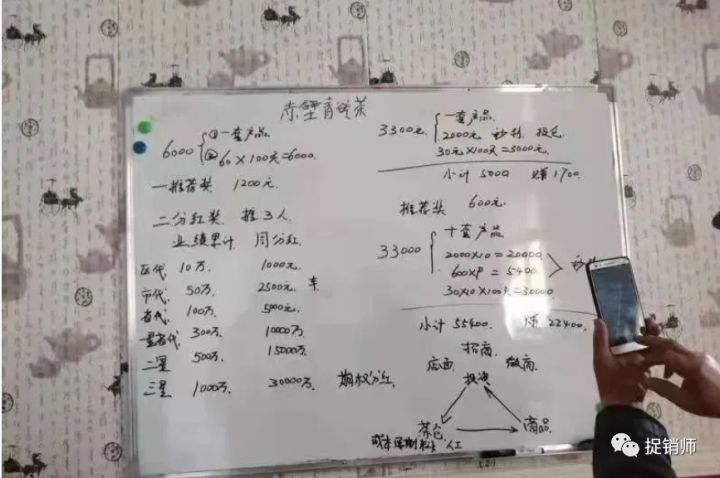 赤壁青砖茶
6000 ①一套产品
②60×100天=6000
一推荐奖 1200元
二分红奖 推3人
业绩累计 周分红
区代 10万 1000元
市代 50万 2500元 车
省代 100万 5000元
一星省代 300万 10000万
二星 500万 15000万
三星 1000万 30000万 期权分红
3300元 一套产品
2000元
30元×100天=3000元
小计 5000 赚1700
推荐奖 600元
33000 十套产品
2000×10=20000
600×9=5400
30×10×100天=30000
小计 55400 赚 22400
招商
店面 微商
投资
茶仓 商品
人工
捉销师